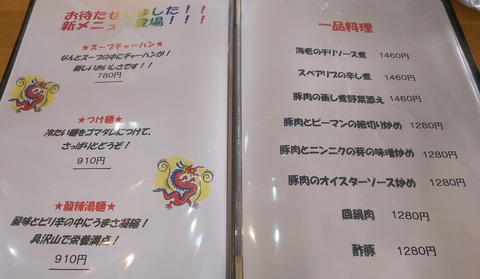 お待たせしました!!
新メニュー登場!!!
★スープチャーハン★
なんとスープの中にチャーハンが!
新しいおいしさです!!
780円
★つけ麺★
冷たい麺をゴマダレにつけて、
さっぱりとどうぞ!
910円
★酸辣湯麺★
酸味とピリ辛の中にうまさ凝縮!
具沢山で栄養満点!
910円
一品料理
海老のチリソース煮 1460円
スペアリブの辛し煮 1460円
豚肉の蒸し煮野菜添え 1460円
豚肉とピーマンの細切り炒め 1280円
豚肉とニンニクの芽の味噌炒め 1280円
豚肉のオイスターソース炒め 1280円
回鍋肉 1280円
酢豚 1280円